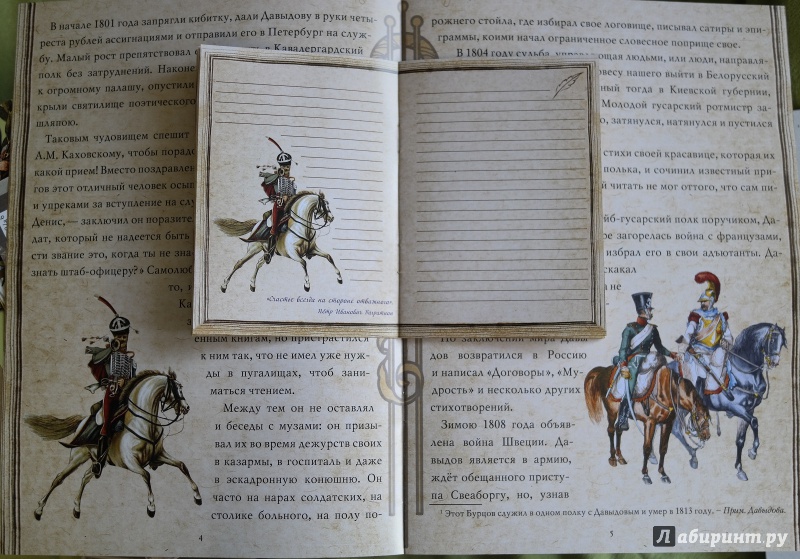 В начале 1801 года запрягли кибитку, дали Давыдову в руки четы-
реста рублей ассигнациями и отправили его в Петербург на служ-
бу. Малый рост препятствовал в Кавалергардский
полк без затруднений. Наконе
к огромному палашу, опустили
крыли святилище поэтического
шляпою.
Таковым чудовищем спешит
А.М. Каховскому, чтобы порадо
какой прием! Вместо поздравлен
гов этот отличный человек осып
и упреками за вступление на слу
Денис,— заключил он поразител
дат, который не надеется быть
сти звание это, когда ты не зна
знать штаб-офицеру?» Самолюб
то, н
Ка
енным книгам, но пристрастился
к ним так, что не имел уже нуж-
ды в пугалищах, чтоб зани-
маться чтением.
Между тем он не оставлял
и беседы с музами: он призы-
вал их во время дежурств своих
в казармы, в госпиталь и даже
в эскадронную конюшню. Он
часто на нарах солдатских, на
столике больного, на полу по-
4
«Счастье всегда на стороне отважного»
Пётр Иванович Багратион
рожнего стойла, где избирал свое логовище, писывал сатиры и эпи-
граммы, коими начал ограниченное словесное поприще свое.
В 1804 году судьба, управляющая людьми, или люди, направля-
весу нашего выйти в Белорусский
ный тогда в Киевской губернии,
Молодой гусарский ротмистр за-
о, затянулся, натянулся и пустился
стихи своей красавице, которая их
полька, и сочинил известный при-
й читать не мог оттого, что сам пи-
йб-гусарский полк поручиком, Да-
ре загорелась война с французами,
избрал его в свои адъютанты. Да-
скакал
н не
По заключении мира Давы-
дов возвратился в Россию
и написал «Договоры», «Му-
дрость» и несколько других
стихотворений.
Зимою 1808 года объяв-
лена война Швеции. Да-
выдов является в армию,
ждёт обещанного присту-
па Свеаборгу, но, узнав
1 Этот Бурцов служил в одном полку с Давыдовым и умер в 1813 году. — Прим. Давыдова.
5
Лабиринт.ру